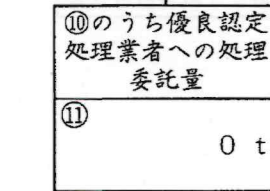 ⑩のうち優良認定
処理業者への処理
委託量
⑪
0 t